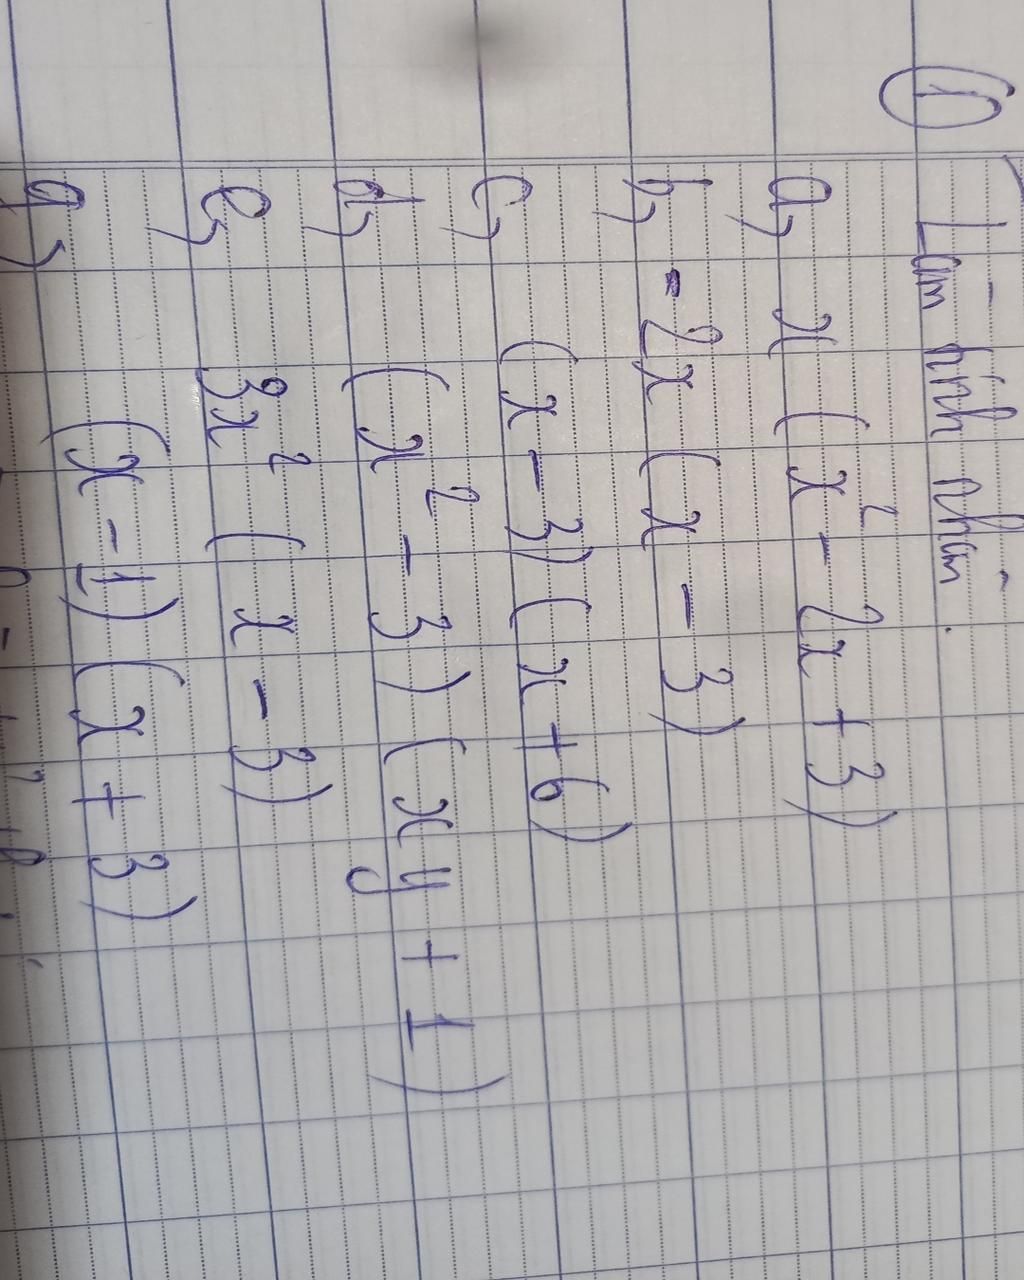 ① Làm tính nhân.
a, x (x² - 2x + 3)
b, - 2x (x - 3)
c, (x - 3) (x + 6)
d, (x² - 3) (xy + 1)
e, 3x² (x - 3)
(x - 1) (x + 3)